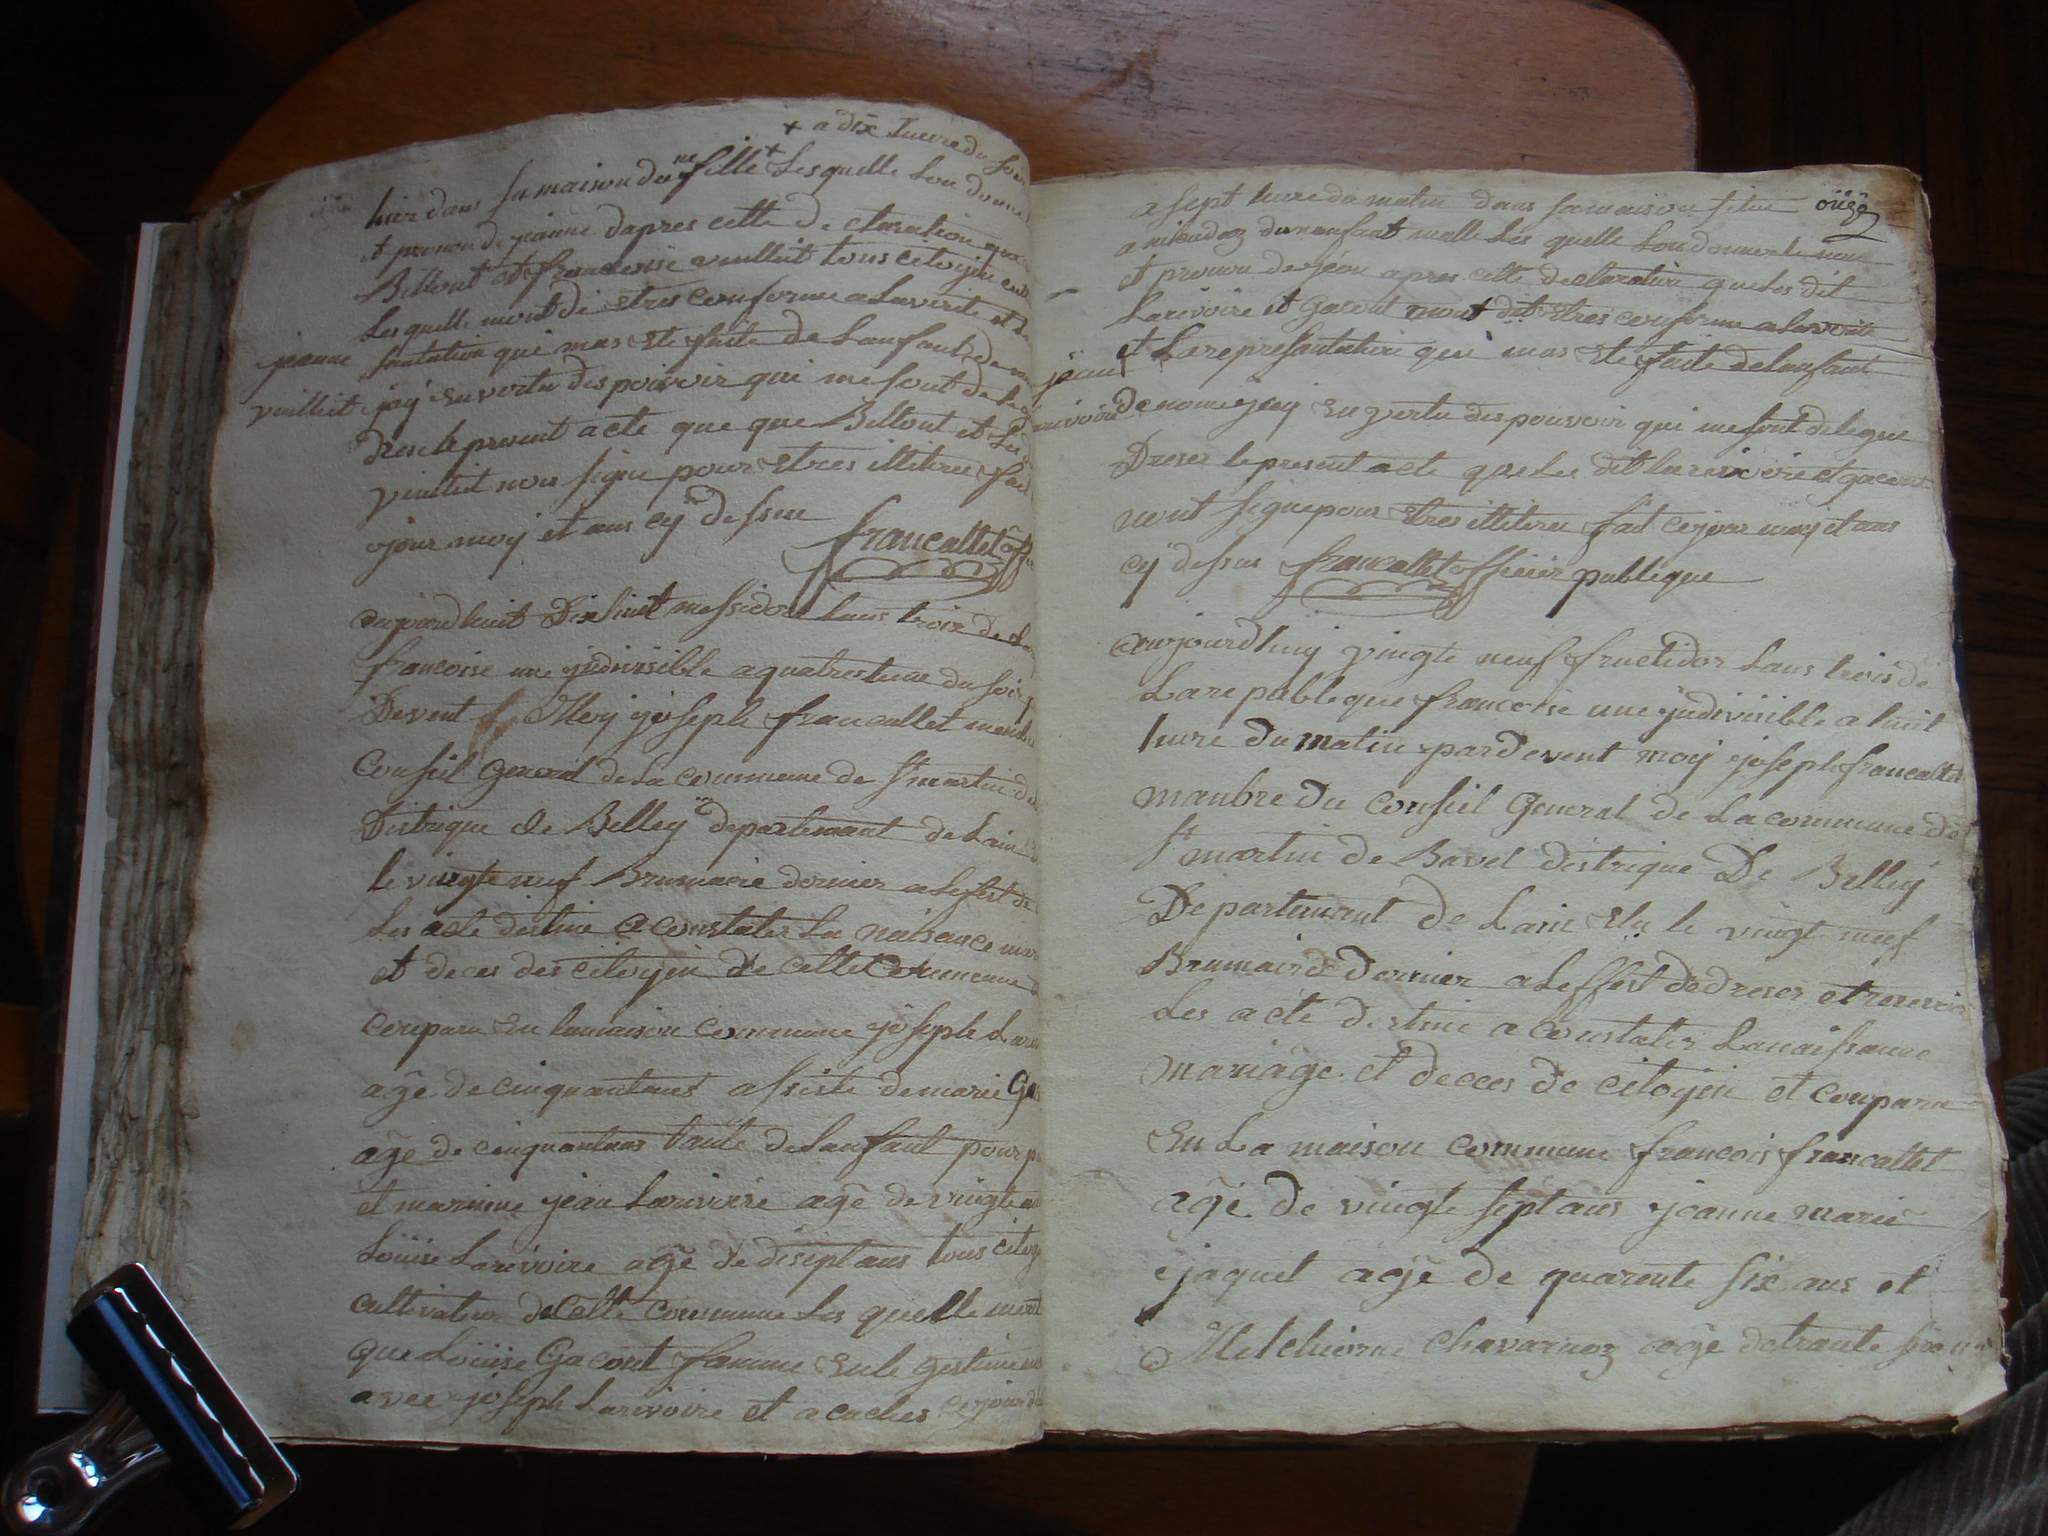 + a dix heure du soir
hier dans sa maison du ne fille + Lesquelle Lon donne
et prenon de jeanne dapres cette de claration que
Billout et francoise veullieit tous citoyin cult
Lesquelle mont di etres conforme a La verite et de
jeanne
sentation qui mas ete faite de Lanfant de nom
veillieit
jay En vertu des pouvoir qui me sont de leg
Drese le present acte que que Billout et Les d
veullieit nons signe pour etres illiteree fait
jour moy et ans cy dessu
francallet offi
aujourdhuit Dixhuit messidor Lans trois de La
francoise une yndivisible a quatres heure du soir p
Devent Moy joseph francallet manbre
Conseil General de La commune de St martin de
Distrique de Belley departemant de Lain
le vingte neuf Brumaire dernier a Leffest de
Les acte destine a constater La naisance mar
et deces des citoyin de cette Commune
conparu En lamaison commune joseph Lari
age de cinquantans assiste de marie Ga
age de cinquantans tante de Lanfant pour p
et marinne jean Larivoire age de vingte an
Louise Larivoire age de diseptans tous citoy
cultivateur de Cette commune Les quelle mont
que Louise Gacont famme En le gestime m
avec joseph Larivoire et a couches cejourd
a sept heure du matin dans samaison situe
onze
a dunanfant malle Les quelle Londonner le nom
et prenon de jean apres cette declaration que Les dit
Larivoire et Gacont mont dit Etres conforme a laverite
jean
et La represantation qui mas ete faite delanfant
larivoire
de nome jay En vertu des pouvoir qui me sont delegue
Dreser le present acte que Les dit larivoire et gacont
nont signe pour Etres illiteree fait cejour moy et ans
cy dessus francallet officier publique
aujourdhuy vingte neuf fructidor Lans trois de
La republeque francoise une yndivisible a huit
heure Du matin par devent moy joseph francallet
manbre Du conseil General de La commune de
St martin de Bavel distrique De Belley
Departement de Lain Elu le vingte neuf
Brumaire Dernier a Leffest de dreser et resevoir
Les acte destine a constater La naissanne
mariage et deces de citoyin et conparu
En La maison commune francois francallet
age De vingte sept ans jeanne marie
jaquet age de quarente six ans et
Melchionne Chavarnoz age de trante six ans